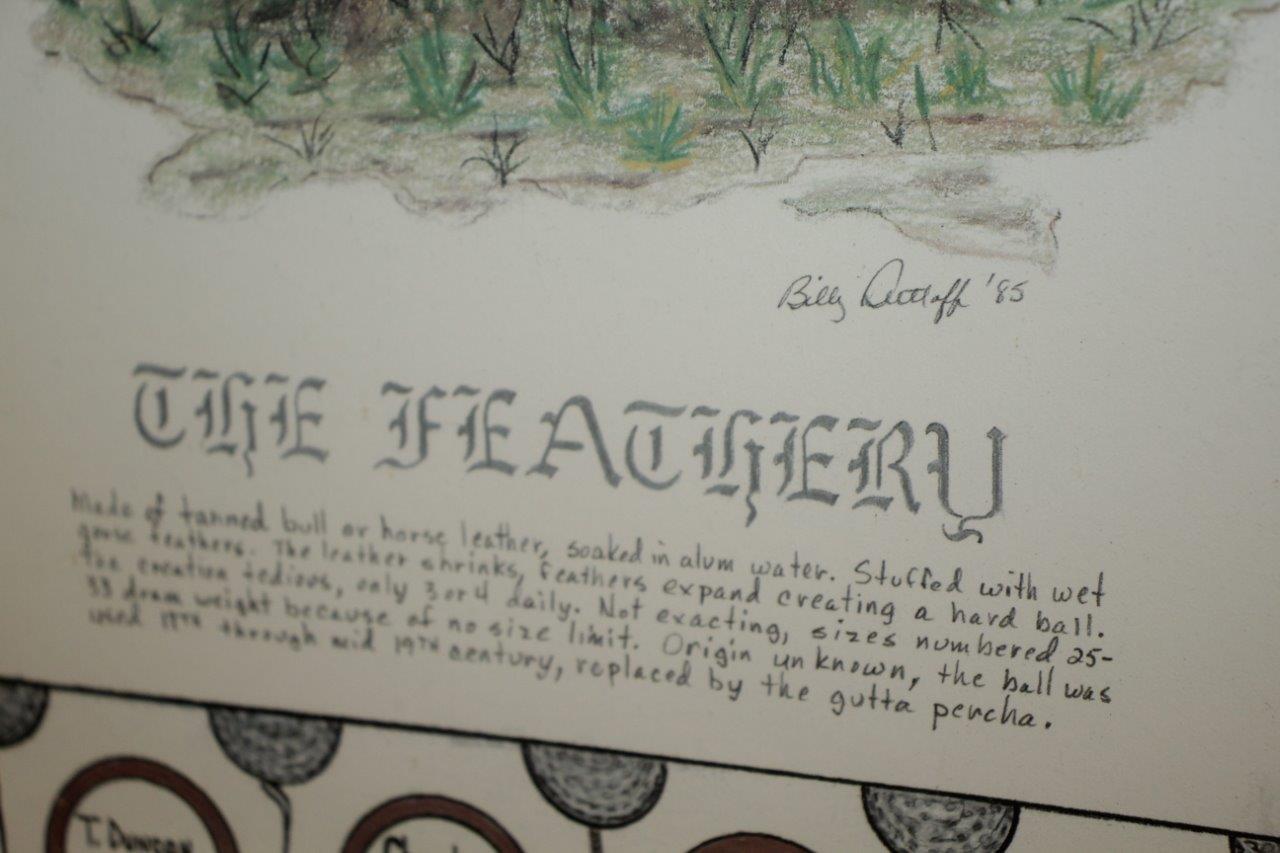 Billy Dettloff '85
THE FEATHERY
Made of tanned bull or horse leather, soaked in alum water. Stuffed with wet
goose feathers. The leather shrinks, feathers expand creating a hard ball.
The creation tedious, only 3 or 4 daily. Not exacting, sizes numbered 25-
33 dram weight because of no size limit. Origin unknown, the ball was
used through mid 19TH century, replaced by the gutta percha.
T. Duncan